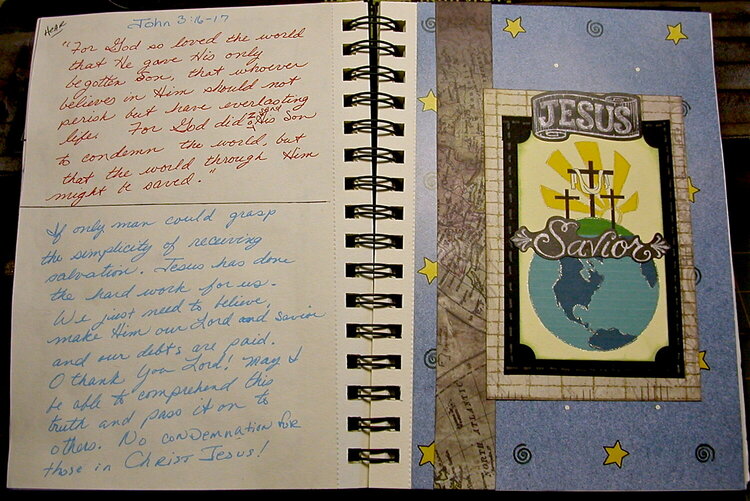 HeAR
John 3:16-17
"For God so loved the world
that He gave His only
begotten Son, that whoever
believes in Him should not
perish but have everlasting
life. For God did not send His Son
to condemn the world, but
that the world through Him
might be saved."
If only man could grasp
the simplicity of receiving
salvation. Jesus has done
the hard work for us.
We just need to believe,
make Him our Lord and Savior
and our debts are paid.
O thank You Lord! May I
be able to comprehend this
truth and pass it on to
others. No conDemnation for
those in Christ Jesus!
JESUS
Savior
NORTH ATLANTIC